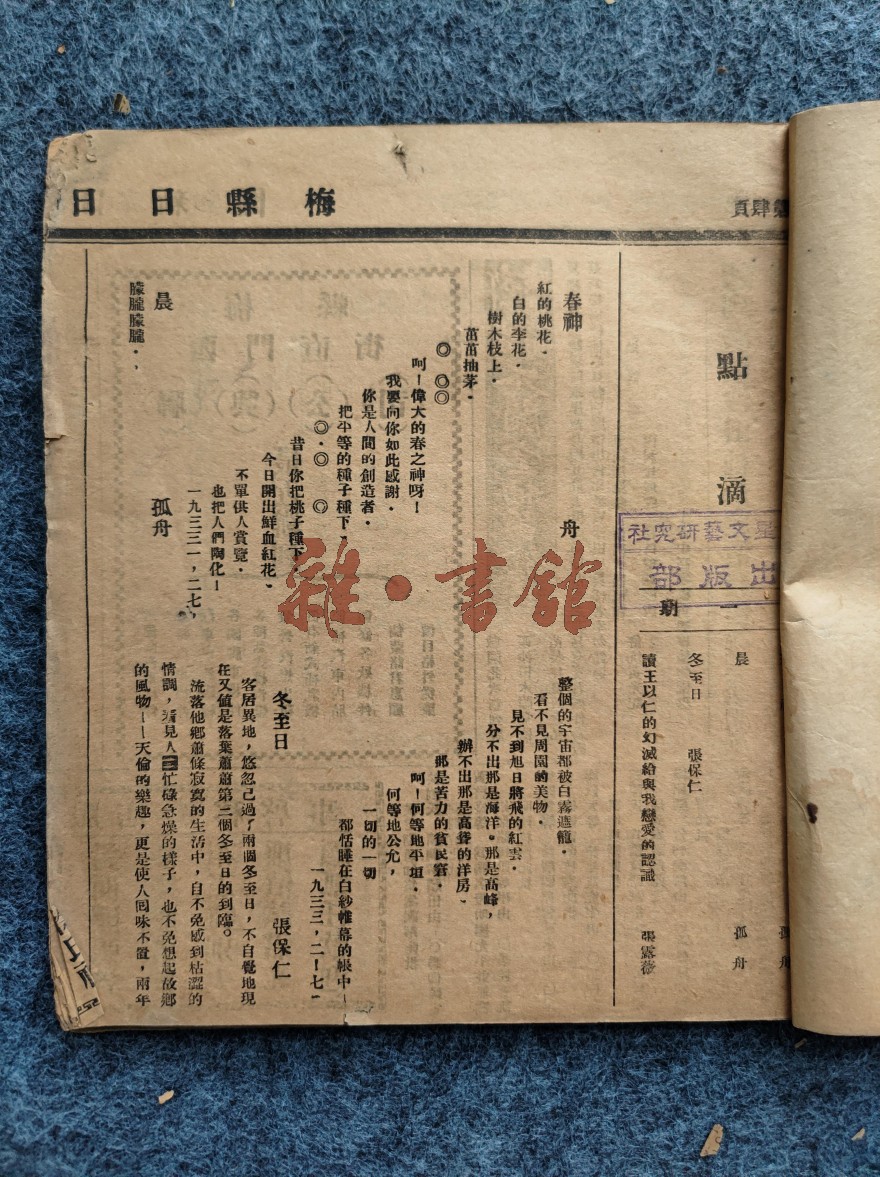 梅縣日日
第肆頁
點滴
星文藝研究社
出版部
一期
孤舟
晨 孤舟
冬至日 張保仁
讀王以仁的幻滅給與我戀愛的認識 張露薇
春神 舟
紅的桃花．
白的李花．
樹木枝上．
茁茁抽茅．
◎ ◎◎
呵！偉大的春之神呀！
我要向你如此感謝．
你是人間的創造者．
把平等的種子種下．
◎．◎ ◎
昔日你把桃子種下．
今日開出鮮血紅花．
不單供人賞覽．
也把人們陶化！
一九三三一，二七，
晨 孤舟
朦朧朦朧．，
整個的宇宙都被白霧遮籠．
看不見周圍的美物．
見不到旭日將飛的紅雲．
分不出那是海洋。那是高峰，
辦不出那是高聳的洋房．
那是苦力的貧民窟．
呵！何等地平坦．
何等地公允，
一切的一切
都恬睡在白紗帷幕的帳中！
一九三三，二！七！
冬至日 張保仁
客居異地，悠忽已過了兩個冬至日，不自覺地現
在又值是落葉蕭蕭第三個冬至日的到臨。
流落他鄉蕭條寂寞的生活中，自不免感到枯澀的
情調，看見人忙碌急燥的樣子，也不免想起故鄉
的風物！！天倫的樂趣，更是使人回味不置，兩年
雜·書館